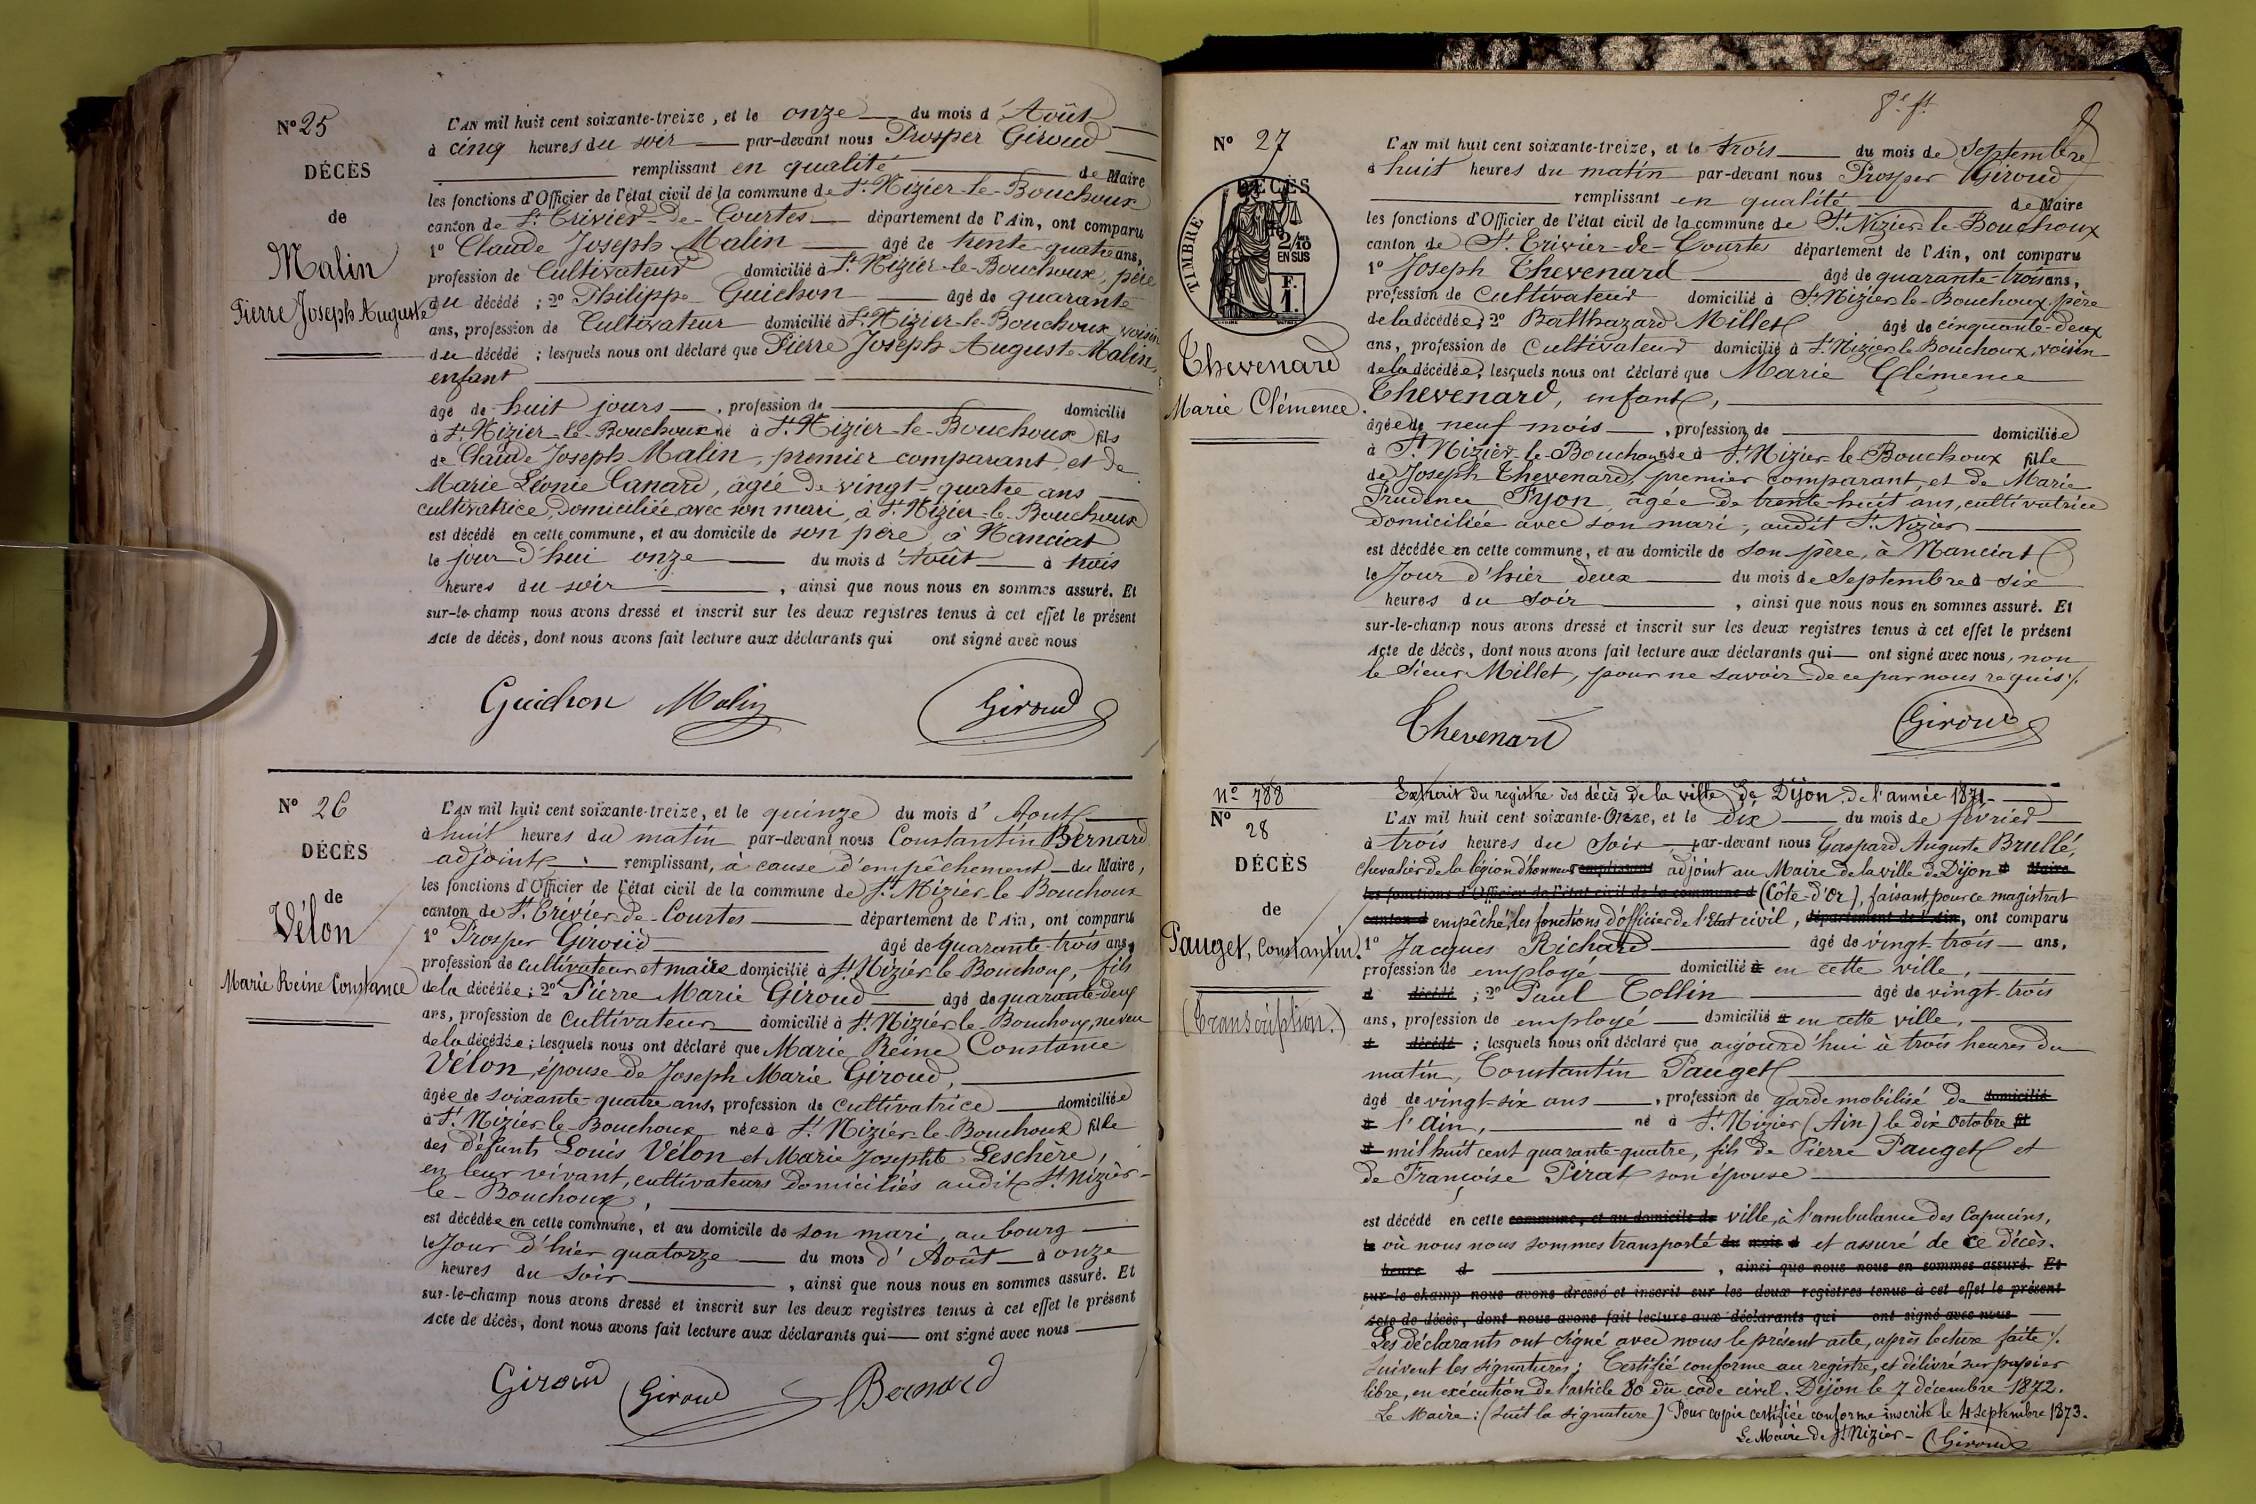 N° 25
DÉCÈS
de
Malin
Pierre Joseph Auguste
L'AN mil huit cent soixante-treize, et le onze du mois d'Août
à cinq heures du soir par-devant nous Prosper Giroud
remplissant en qualité de Maire
les fonctions d'Officier de l'état civil de la commune de St Nizier-le-Bouchoux
canton de St Trivier-de-Courtes département de l'Ain, ont comparu
1° Claude Joseph Malin âgé de trente-quatre ans,
profession de Cultivateur domicilié à St Nizier-le-Bouchoux, père
du décédé ; 2° Philippe Guichon âgé de quarante
ans, profession de Cultivateur domicilié à St Nizier-le-Bouchoux, voisin
du décédé ; lesquels nous ont déclaré que Pierre Joseph Auguste Malin,
enfant
âgé de huit jours, profession de domicilié
à St Nizier-le-Bouchoux né à St Nizier-le-Bouchoux fils
de Claude Joseph Malin, premier comparant, et de
Marie Léonie Canard, âgée de vingt-quatre ans
cultivatrice, domiciliée avec son mari, à St Nizier-le-Bouchoux
est décédé en cette commune, et au domicile de son père, à Nanciat
le jour d'hui onze du mois d'Août à trois
heures du soir, ainsi que nous nous en sommes assuré. Et
sur-le-champ nous avons dressé et inscrit sur les deux registres tenus à cet effet le présent
Acte de décès, dont nous avons fait lecture aux déclarants qui ont signé avec nous
Guichon Malin Giroud
N° 26
DÉCÈS
de
Vélon
Marie Reine Constance
L'AN mil huit cent soixante-treize, et le quinze du mois d'Août
à huit heures du matin par-devant nous Constantin Bernard
adjoint remplissant, à cause d'empêchement du Maire,
les fonctions d'Officier de l'état civil de la commune de St Nizier-le-Bouchoux
canton de St Trivier-de-Courtes département de l'Ain, ont comparu
1° Prosper Giroud âgé de quarante-trois ans,
profession de cultivateur et maire domicilié à St Nizier-le-Bouchoux, fils
de la décédée ; 2° Pierre Marie Giroud âgé de quarante-deux
ans, profession de Cultivateur domicilié à St Nizier-le-Bouchoux, neveu
de la décédée ; lesquels nous ont déclaré que Marie Reine Constance
Vélon, épouse de Joseph Marie Giroud,
âgée de soixante-quatre ans, profession de cultivatrice domiciliée
à St Nizier-le-Bouchoux née à St Nizier-le-Bouchoux fille
des défunts Louis Vélon et Marie Josephte Leschère,
en leur vivant, cultivateurs domiciliés audit St Nizier-
le-Bouchoux,
est décédée en cette commune, et au domicile de son mari, au bourg
le Jour d'hier quatorze du mois d'Août à onze
heures du soir, ainsi que nous nous en sommes assuré. Et
sur-le-champ nous avons dressé et inscrit sur les deux registres tenus à cet effet le présent
Acte de décès, dont nous avons fait lecture aux déclarants qui ont signé avec nous
Giroud Giroud Bernard
8e ft
N° 27
DÉCÈS
TIMBRE
2/10
EN SUS
F.
1.
Thevenard
Marie Clémence.
L'AN mil huit cent soixante-treize, et le trois du mois de Septembre
à huit heures du matin par-devant nous Prosper Giroud
remplissant en qualité de Maire
les fonctions d'Officier de l'état civil de la commune de St Nizier-le-Bouchoux
canton de St Trivier-de-Courtes département de l'Ain, ont comparu
1° Joseph Thevenard âgé de quarante-trois ans,
profession de Cultivateur domicilié à St Nizier-le-Bouchoux, père
de la décédée ; 2° Balthazard Millet âgé de cinquante-deux
ans, profession de Cultivateur domicilié à St Nizier-le-Bouchoux, voisin
de la décédée, lesquels nous ont déclaré que Marie Clémence
Thevenard, enfant,
âgée de neuf mois, profession de domiciliée
à St Nizier-le-Bouchoux née à St Nizier-le-Bouchoux fille
de Joseph Thevenard, premier comparant, et de Marie
Prudence Fyon, âgée de trente-huit ans, cultivatrice
domiciliée avec son mari, audit St Nizier
est décédée en cette commune, et au domicile de son père, à Nanciat
le Jour d'hier deux du mois de Septembre à six
heures du soir, ainsi que nous nous en sommes assuré. Et
sur-le-champ nous avons dressé et inscrit sur les deux registres tenus à cet effet le présent
Acte de décès, dont nous avons fait lecture aux déclarants qui ont signé avec nous, non
le Sieur Millet, pour ne savoir de ce par nous requis ./.
Thevenard Giroud
N° 788
N° 28
DÉCÈS
de
Pauget, Constantin.
(Transcription.)
Extrait du registre des décès de la ville de Dijon, de l'année 1871.
L'AN mil huit cent soixante-Onze, et le dix du mois de février
à trois heures du Soir par-devant nous Gaspard Auguste Brullé,
Chevalier de la légion d'honneur remplissant adjoint au Maire de la ville de Dijon d Maire
les fonctions d'Officier de l'état civil de la commune d (Côte-d'Or), faisant pour ce magistrat
canton d empêché, les fonctions d'officier de l'Etat civil, département de l'Ain, ont comparu
1° Jacques Richard âgé de vingt-trois ans,
profession de employé domicilié à en cette ville,
d décédé ; 2° Paul Collin âgé de vingt-trois
ans, profession de employé domicilié à en cette ville,
d décédé ; lesquels nous ont déclaré que aujourd'hui à trois heures du
matin, Constantin Pauget
âgé de vingt-six ans, profession de garde mobilisé de domicilié
à l'Ain, né à St Nizier (Ain) le dix Octobre fil
d mil huit cent quarante-quatre, fils de Pierre Pauget et
de Françoise Pirat son épouse
est décédé en cette commune, et au domicile de ville, à l'ambulance des Capucins,
le où nous nous sommes transporté du mois d et assuré de ce décès.
heure d , ainsi que nous nous en sommes assuré. Et
sur-le-champ nous avons dressé et inscrit sur les deux registres tenus à cet effet le présent
Acte de décès, dont nous avons fait lecture aux déclarants qui ont signé avec nous
Les déclarants ont signé avec nous le présent acte, après lecture faite ./.
Suivent les signatures ; Certifié conforme au registre, et délivré sur papier
libre, en exécution de l'article 80 du code civil. Dijon le 7 décembre 1872.
Le Maire : (suit la signature) Pour copie certifiée conforme inscrite le 4 Septembre 1873.
Le Maire de St Nizier - Giroud